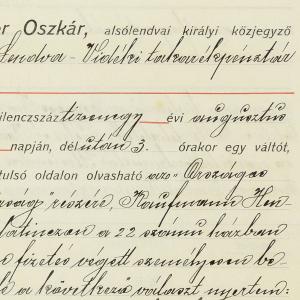 er Oszkár, alsólendvai királyi közjegyző
Lendva-Vidéki takarékpénztár
ilenczszáztizenegy évi augusztus
napján, délután 3. órakor egy váltót,
tulsó oldalon olvasható az "Országos
részére, Kaufmann Hen
a 22 számú házban
fizetés végett személyesen be
a következő választ nyertem: